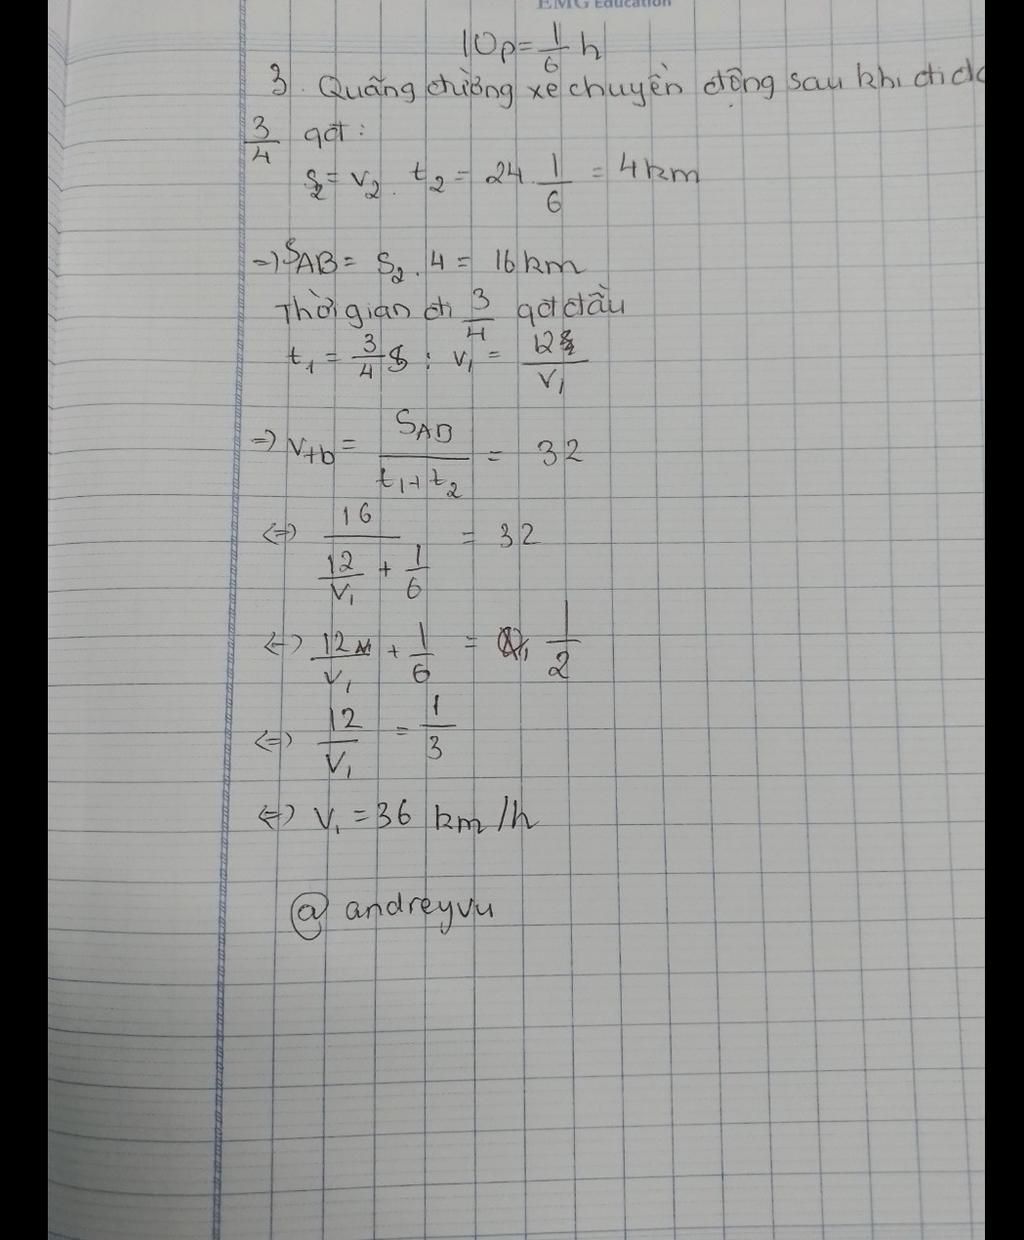 EMG Education
10p = 1/6 h
3. Quãng đường xe chuyển động sau khi đi đc
3/4 qđ:
S2 = v2 . t2 = 24 . 1/6 = 4 km
=> SAB = S2 . 4 = 16 km
Thời gian đi 3/4 qđ đầu
t1 = 3/4 S : v1 = 12/v1
=> vtb = SAB/(t1 + t2) = 32
<=> 16/(12/v1 + 1/6) = 32
<=> 12/v1 + 1/6 = 1/2
<=> 12/v1 = 1/3
<=> v1 = 36 km/h
@ andreyvu